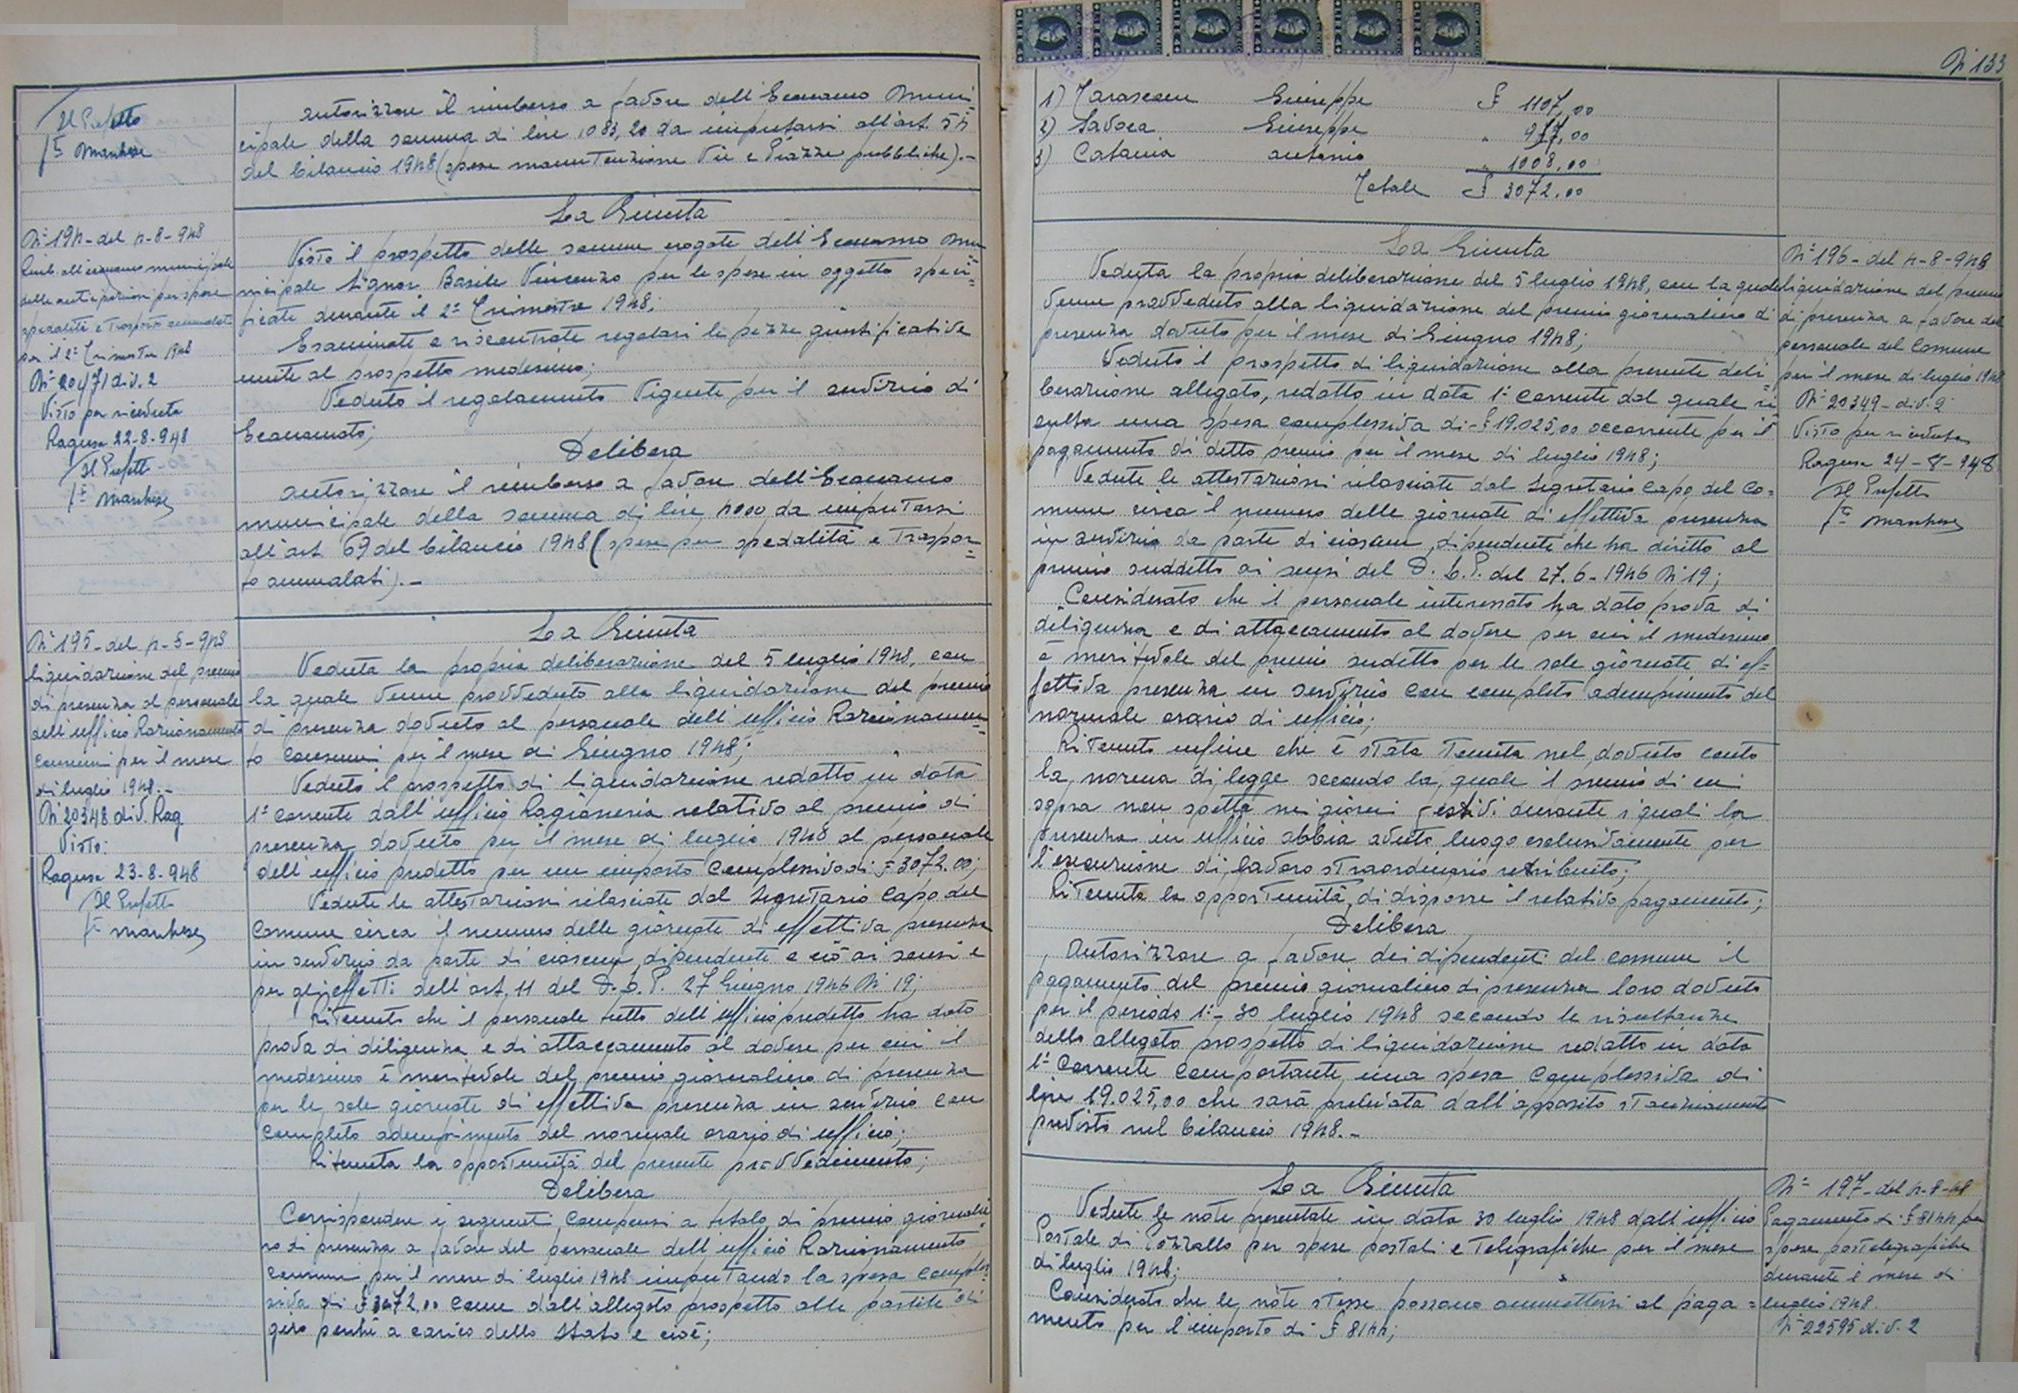 Il Prefetto
Fto Marchese
autorizzare il rimborso a favore dell'Economo Muni=
cipale della somma di lire 1083,20 da imputarsi all'art. 54
del bilancio 1948 (spese manutenzione Vie e Piazze pubbliche).-
N° 194 - del 4-8-948
Rimb. all'economo municipale
delle anticipazioni per spese
spedalità e trasporto ammalati
per il 2° Trimestre 1948
div. 2
Visto per ricevuta
Ragusa 22-8-948
Il Prefetto
Fto Marchese
La Giunta
Visto il prospetto delle somme erogate dell'Economo Mu=
nicipale Signor Basile Vincenzo per le spese in oggetto speci=
ficate durante il 2° Trimestre 1948;
Esaminate e riscontrate regolari le pezze giustificative
unite al prospetto medesimo;
Veduto il regolamento Vigente per il servizio di
Economato;
Delibera
autorizzare il rimborso a favore dell'Economo
municipale della somma di lire 4000 da imputarsi
all'art. 69 del bilancio 1948 (spese per spedalità e Traspor=
to ammalati).-
N° 195 - del 4-8-948
liquidazione del premio
di presenza al personale
dell'ufficio Razionamento
consumi per il mese
di luglio 1948.-
N° 20348 div. Rag
Visto:
Ragusa 23-8-948
Il Prefetto
Fto Marchese
La Giunta
Veduta la propria deliberazione del 5 luglio 1948, con
la quale venne provveduto alla liquidazione del premio
di presenza dovuto al personale dell'ufficio Razionamen=
to Consumi per il mese di Giugno 1948;
Veduto il prospetto di liquidazione redatto in data
1° corrente dall'ufficio Ragioneria relativo al premio di
presenza dovuto per il mese di luglio 1948 al personale
dell'ufficio predetto per un importo complessivo di £ 3072.00;
Vedute le attestazioni rilasciate dal Segretario Capo del
Comune circa il numero delle giornate di effettiva presenza
in servizio da parte di ciascun dipendente e ciò ai sensi e
per gli effetti dell'art. 11 del D.L.P. 27 Giugno 1946 N° 19;
Ritenuto che il personale tutto dell'ufficio predetto ha dato
prova di diligenza e di attaccamento al dovere per cui il
medesimo è meritevole del premio giornaliero di presenza
per le sole giornate di effettiva presenza in servizio con
completo adempimento del normale orario di ufficio;
Ritenuta la opportunità del presente provvedimento;
Delibera
Corrispondere i seguenti compensi a titolo di premio giornalie
ro di presenza a favore del personale dell'ufficio Razionamento
consumi per il mese di luglio 1948 imputando la spesa comples=
siva di £ 3072,00 come dall'allegato prospetto alle partite di
giro perchè a carico dello Stato e cioè;
N° 133
1) Tarascone Giuseppe £ 1107,00
2) Savoca Giuseppe " 957,00
3) Catania Antonio " 1008,00
Totale £ 3072.00
La Giunta
Veduta la propria deliberazione del 5 luglio 1948, con la quale
venne provveduto alla liquidazione del premio giornaliero di
presenza dovuto per il mese di Giugno 1948;
Veduto il prospetto di liquidazione alla presente deli=
berazione allegato, redatto in data 1° corrente dal quale ri
sulta una spesa complessiva di £ 19.025,00 occorrente per il
pagamento di detto premio per il mese di luglio 1948;
Vedute le attestazioni rilasciate dal Segretario Capo del Co=
mune circa il numero delle giornate di effettiva presenza
in servizio da parte di ciascun dipendente che ha diritto al
premio suddetto ai sensi del D.L.P. del 27-6-1946 N° 19;
Considerato che il personale interessato ha dato prova di
diligenza e di attaccamento al dovere per cui il medesimo
è meritevole del premio sudetto per le sole giornate di ef=
fettiva presenza in servizio con completo adempimento del
normale orario di ufficio;
Ritenuto infine che è stata tenuta nel dovuto conto
la norma di legge secondo la quale il premio di cui
sopra non spetta nei giorni festivi durante i quali la
presenza in ufficio abbia avuto luogo esclusivamente per
l'esecuzione di lavoro straordinario retribuito;
Ritenuta la opportunità di disporre il relativo pagamento;
Delibera
Autorizzare a favore dei dipendenti del comune il
pagamento del premio giornaliero di presenza loro dovuto
per il periodo 1° - 30 luglio 1948 secondo le risultanze
dello allegato prospetto di liquidazione redatto in data
1° corrente comportante una spesa complessiva di
lire 19.025,00 che sarà prelevata dall'apposito stanziamento
previsto nel bilancio 1948.-
N° 196 - del 4-8-948
liquidazione del premio
di presenza a favore del
personale del Comune
per il mese di luglio 1948
N° 20349 - div. 2
Visto per ricevuta
Ragusa 24-8-948
Il Prefetto
Fto Marchese
La Giunta
Vedute le note presentate in data 30 luglio 1948 dall'ufficio
Postale di Pozzallo per spese postali e Telegrafiche per il mese
di luglio 1948;
Considerato che le note stesse possono ammettersi al paga=
mento per l'importo di £ 8144;
N° 197 - del 4-8-48
Pagamento di £ 8144 per
spese postelegrafiche
durante il mese di
luglio 1948.
N° 22595 div. 2